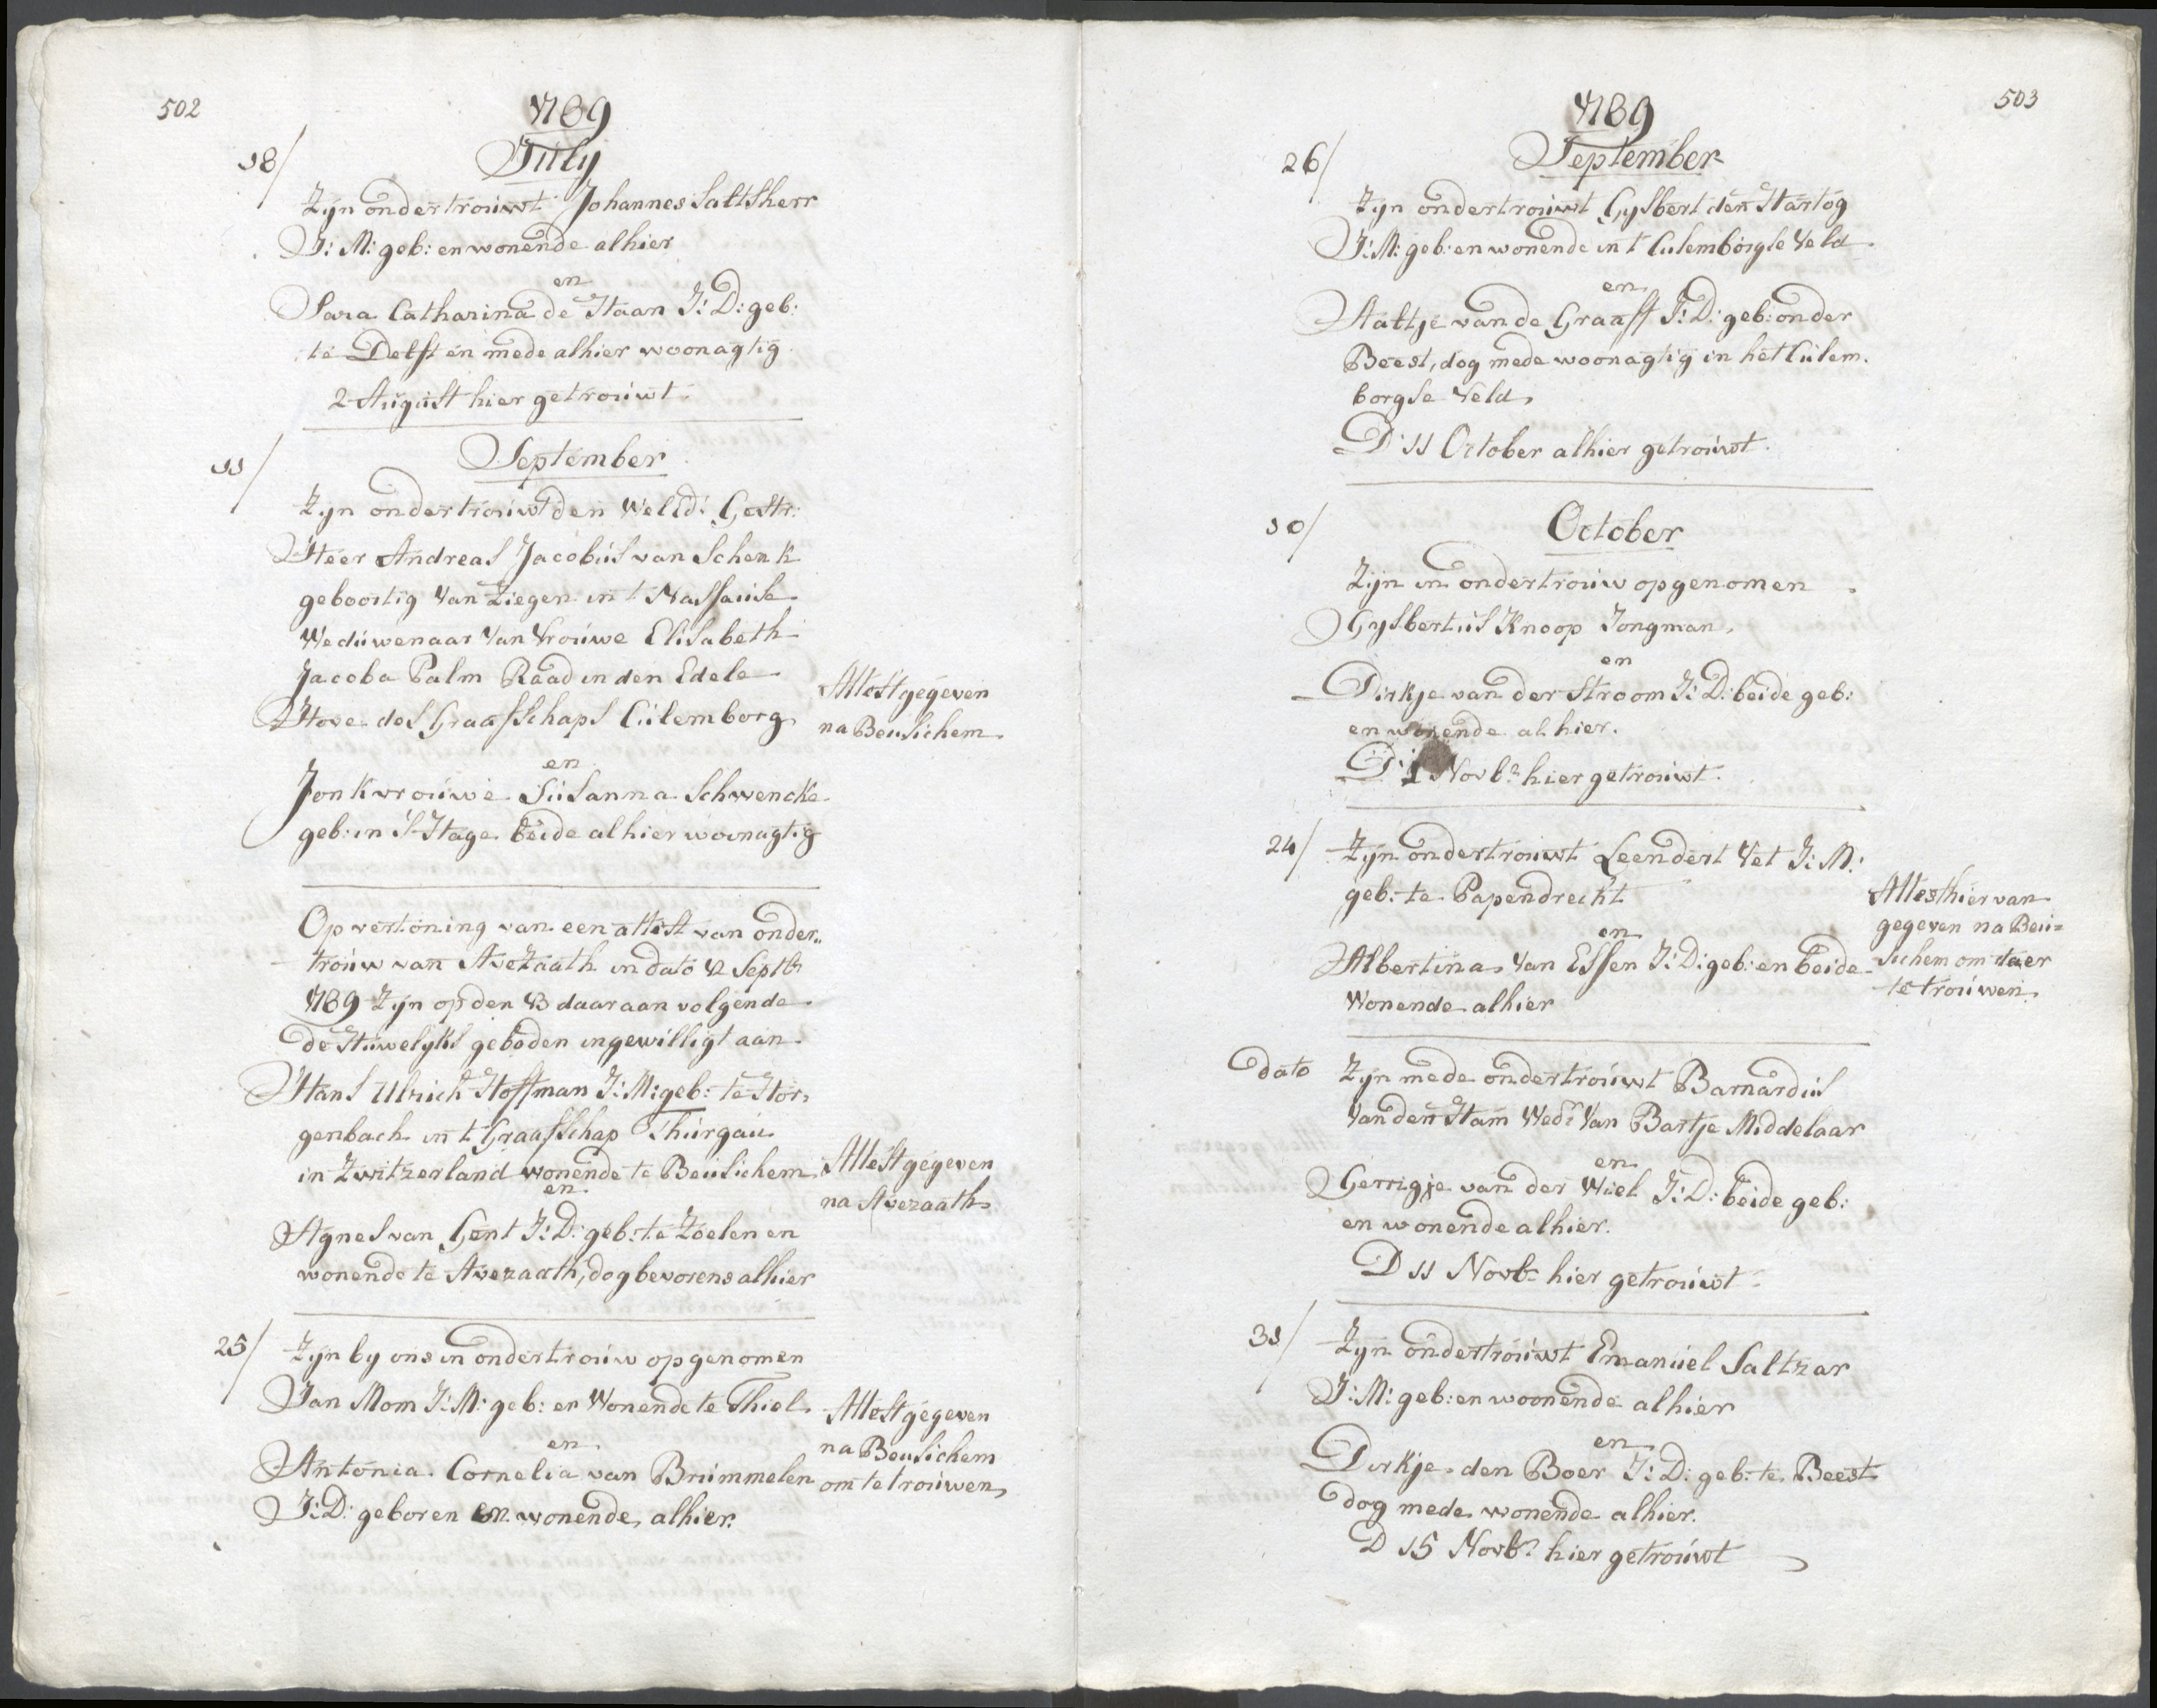 502
1789
July
18/
Zyn ondertrouwt Johannes Saltsherr
J: M: geb: en wonende alhier
en
Sara Catharina de Haan J: D: geb:
te Delft en mede alhier woonagtig
2 August hier getrouwt
11/
September
Zyn ondertrouwt den WelEd: Gestr:
Heer Andreas Jacobus van Schenk
geboortig van Ziegen in t Nassause
Weduwenaar van Vrouwe Elisabeth
Jacoba Palm Raad in den Edele
Hove des Graafschaps Culemborg
Attest gegeven
na Beusichem
en
Jonkvrouwe Susanna Schwencke
geb: in S Hage beide alhier woonagtig
Op vertoning van een attest van onder„
trouw van Avezaath in dato 12 Septbr
1789 Zyn op den 13 daar aan volgende
de Huwelyks geboden ingewilligt aan
Hans Ulrich Hoffman J: M: geb: te Hor,
genbach in t Graafschap Thurgau
in Zwitzerland wonende te Beusichem
en
Attest gegeven
na Avezaath
Agnes van Gent J: D: geb: te Zoelen en
wonende te Avezaath, dog bevorens alhier
25/
Zyn by ons in ondertrouw opgenomen
Jan Mom J: M: geb: en Wonende te Thiel
en
Attest gegeven
na Beusichem
om te trouwen
Antonia Cornelia van Brummelen
J: D: geboren en wonende alhier.
503
1789
September
26/
Zyn ondertrouwt Gysbert den Hartog
J: M: geb: en wonende in t Culemborgse Veld
en
Aaltje van de Graaff J: D: geb: onder
Beest, dog mede woonagtig in het Culem.
borgse Veld,
D 11 October alhier getrouwt
10/
October
Zijn in ondertrouw opgenomen
Gysbertus Knoop Jongman,
en
Dirkje van der Stroom J: D: beide geb:
en wonende alhier.
D: 1 Novbr hier getrouwt
24/
Zyn ondertrouwt Leendert Vet J: M:
geb: te Papendrecht
en
Albertina Van Essen J: D: geb: en beide
Wonende alhier
Attest hier van
gegeven na Beu=
sichem om daer
te trouwen
dato
Zyn mede ondertrouwt Barnardus
Van den Ham Wedr Van Bartje Middelaar
en
Gerrigje van der Wiel J: D: beide geb:
en wonende alhier.
D 11 Novbr hier getrouwt
31/
Zyn ondertrouwt Emanuel Saltzar
J: M: geb: en woonende alhier
en
Dirkje den Boer J: D: geb: te Beest
dog mede wonende alhier.
D 15 Novbr hier getrouwt